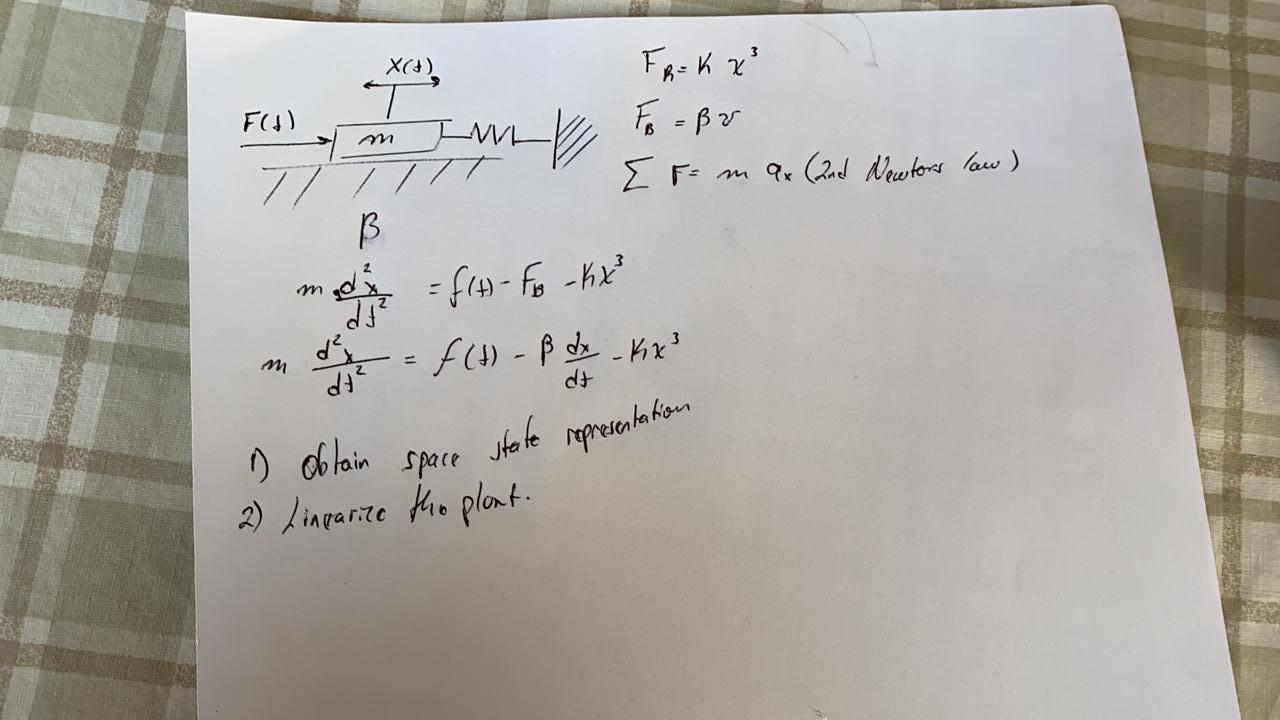 X(t)
F(t)
m
β
F_R = K x³
F_B = β v
Σ F = m a_x (2nd Newtons law)
m d²x/dt² = f(t) - F_B - Kx³
m d²x/dt² = f(t) - β dx/dt - Kx³
1) Obtain space state representation
2) Linearize the plant.